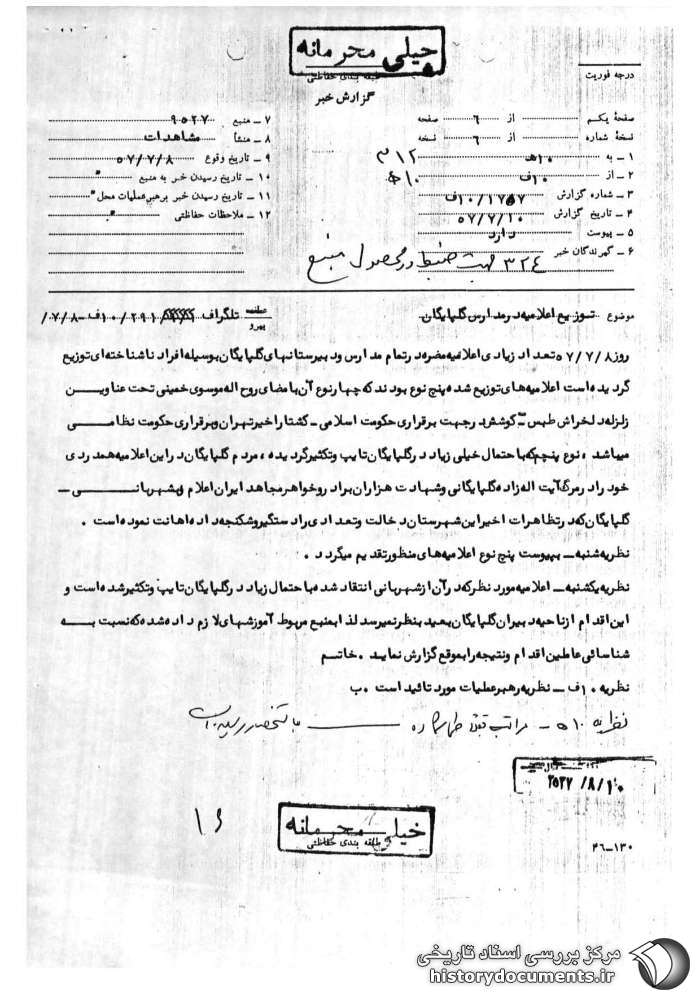 خیلی محرمانه
طبقه بندی حفاظتی
گزارش خبر
درجه فوریت
صفحهٔ یکم از ۶ صفحه
نسخهٔ شماره از ۶ نسخه
۱ – به ۱۰ هـ ۳۱۲
۲ – از ۱۰ف
۳ – شماره گزارش ۱۰/۱۷۵۷ف
۴ – تاریخ گزارش ۵۷/۷/۱۰
۵ – پیوست دارد
۶ – گیرندگان خبر ۳۲۴ جهت ضبط در محصول منبع
۷ – منبع ۹۵۲۷
۸ – منشأ مشاهدات
۹ – تاریخ وقوع ۵۷/۷/۸
۱۰ – تاریخ رسیدن خبر به منبع "
۱۱ – تاریخ رسیدن خبر برهبر عملیات محل "
۱۲ – ملاحظات حفاظتی "
موضوع توزیع اعلامیه در مدارس گلپایگان
پیرو تلگراف ۱۰/۲۹۱ف-۷/۸/
روز ۵۷/۷/۸ تعداد زیادی اعلامیه مضره در تمام مدارس و دبیرستانهای گلپایگان بوسیله افراد ناشناخته ای توزیع
گردیده است اعلامیه های توزیع شده پنج نوع بودند که چهار نوع آن با مضای روح اله موسوی خمینی تحت عناوین
زلزله دلخراش طبس – گوشزد در جهت برقراری حکومت اسلامی – کشتار اخیر تهران و برقراری حکومت نظامی
میباشد . نوع پنجم که با حتمال خیلی زیاد در گلپایگان تایپ و تکثیر گردیده ، مردم گلپایگان در این اعلامیه همدردی
خود را در مرگ آیت اله زاده گلپایگانی و شهادت هزاران برادر و خواهر مجاهد ایران اعلام و بشهربانی –
گلپایگان که در تظاهرات اخیر این شهرستان دخالت و تعدادی را دستگیر و شکنجه داده اهانت نموده است .
نظریه شنبه – بپیوست پنج نوع اعلامیه های منظور تقدیم میگردد .
نظریه یکشنبه – اعلامیه مورد نظر که در آن از شهربانی انتقاد شده با حتمال زیاد در گلپایگان تایپ و تکثیر شده است و
این اقدام از ناحیه دبیران گلپایگان بعید بنظر نمیرسد لذا بمنبع مربوط آموزشهای لازم داده شده که نسبت به
شناسائی عاملین اقدام و نتیجه را بموقع گزارش نماید . خاتم
نظریه ۱۰ف – نظریه رهبر عملیات مورد تائید است . ب
نظریه ۱۰ هـ – مراتب قبلاً
۲۵۳۷/۸/۱۰
۱۶
خیلی محرمانه
طبقه بندی حفاظتی
۴۶-۱۳۰
مرکز بررسی اسناد تاریخی
historydocuments.ir